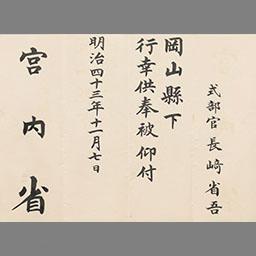 式部官長崎省吾
岡山縣下
行幸供奉被仰付
明治四十三年十一月七日
宮内省